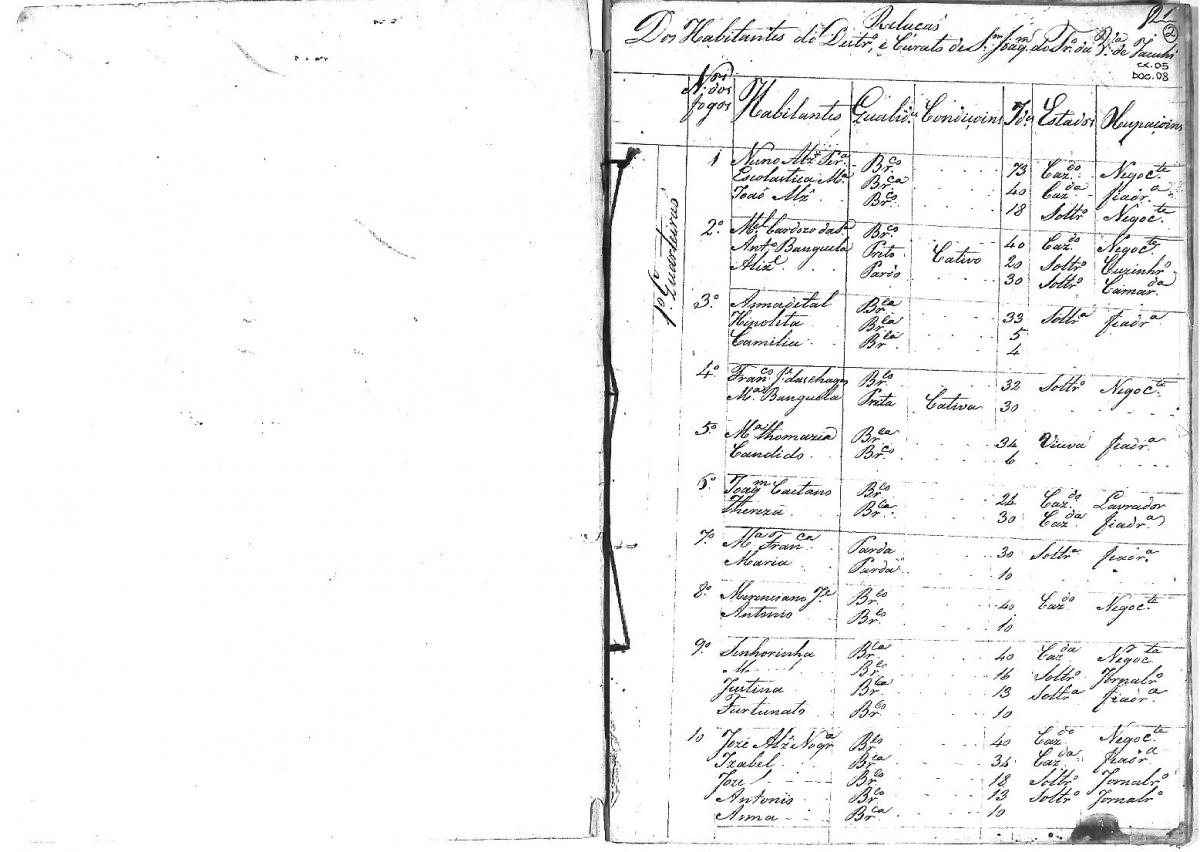 Relucaó
Dos Habitantes do Destrº, e Curato de S.m Joaq.m do Trº da Vª de Jacuhi
21
2
cx.05
Doc.08
N.os dos fogos Habitantes Qualid.es Condiçoins Id.es Estados Ocupaçoins
1º C Quarteiraó
1 Nuno Alz' Per.ª Br.co 73 Caz.do Negoc.te
Escolastica M.ª Br.ca 40 Caz.da fiadr.ª
Joaó Alz' Br.co 18 Soltrº Negoc.te
2º M.el Cardozo da S.ª Br.co 40 Caz.do Negoc.te
Antº Banguela Preto Cativo 20 Soltrº Cuzinhrº
Pardo 30 Soltrº Camar.da
3º Br.ca 33 Soltrª fiadr.ª
Hipolita Br.ca 5
Camilia Br.ca 4
4º Fran.co Je das chagas Br.co 32 Soltrº Negoc.te
M.ª Banguela Preta Cativa 30
5º M.ª thomazia Br.ca 34 Viuva fiadr.ª
Candido Br.co 6
6º Joaq.m Caetano Br.co 24 Caz.do Lavrador
Thereza Br.ca 30 Caz.da fiadr.ª
7º M.ª Fran.ca Parda 30 Soltrª fiadr.ª
Maria Parda 10
8º Je Br.co 40 Caz.do Negoc.te
Antonio Br.co 10
9º Senhorinha Br.ca 40 Caz.da Negoc.te
M Br.co 16 Soltrº Jornalrº
Justina Br.ca 13 Soltrª fiadr.ª
Furtunato Br.co 10
10 Joze Alz' Nogr.ª Br.co 40 Caz.do Negoc.te
Izabel Br.ca 34 Caz.da fiadr.ª
Joze Br.co 18 Soltrº Jornalrº
Antonio Br.co 13 Soltrº Jornalrº
Anna Br.ca 10